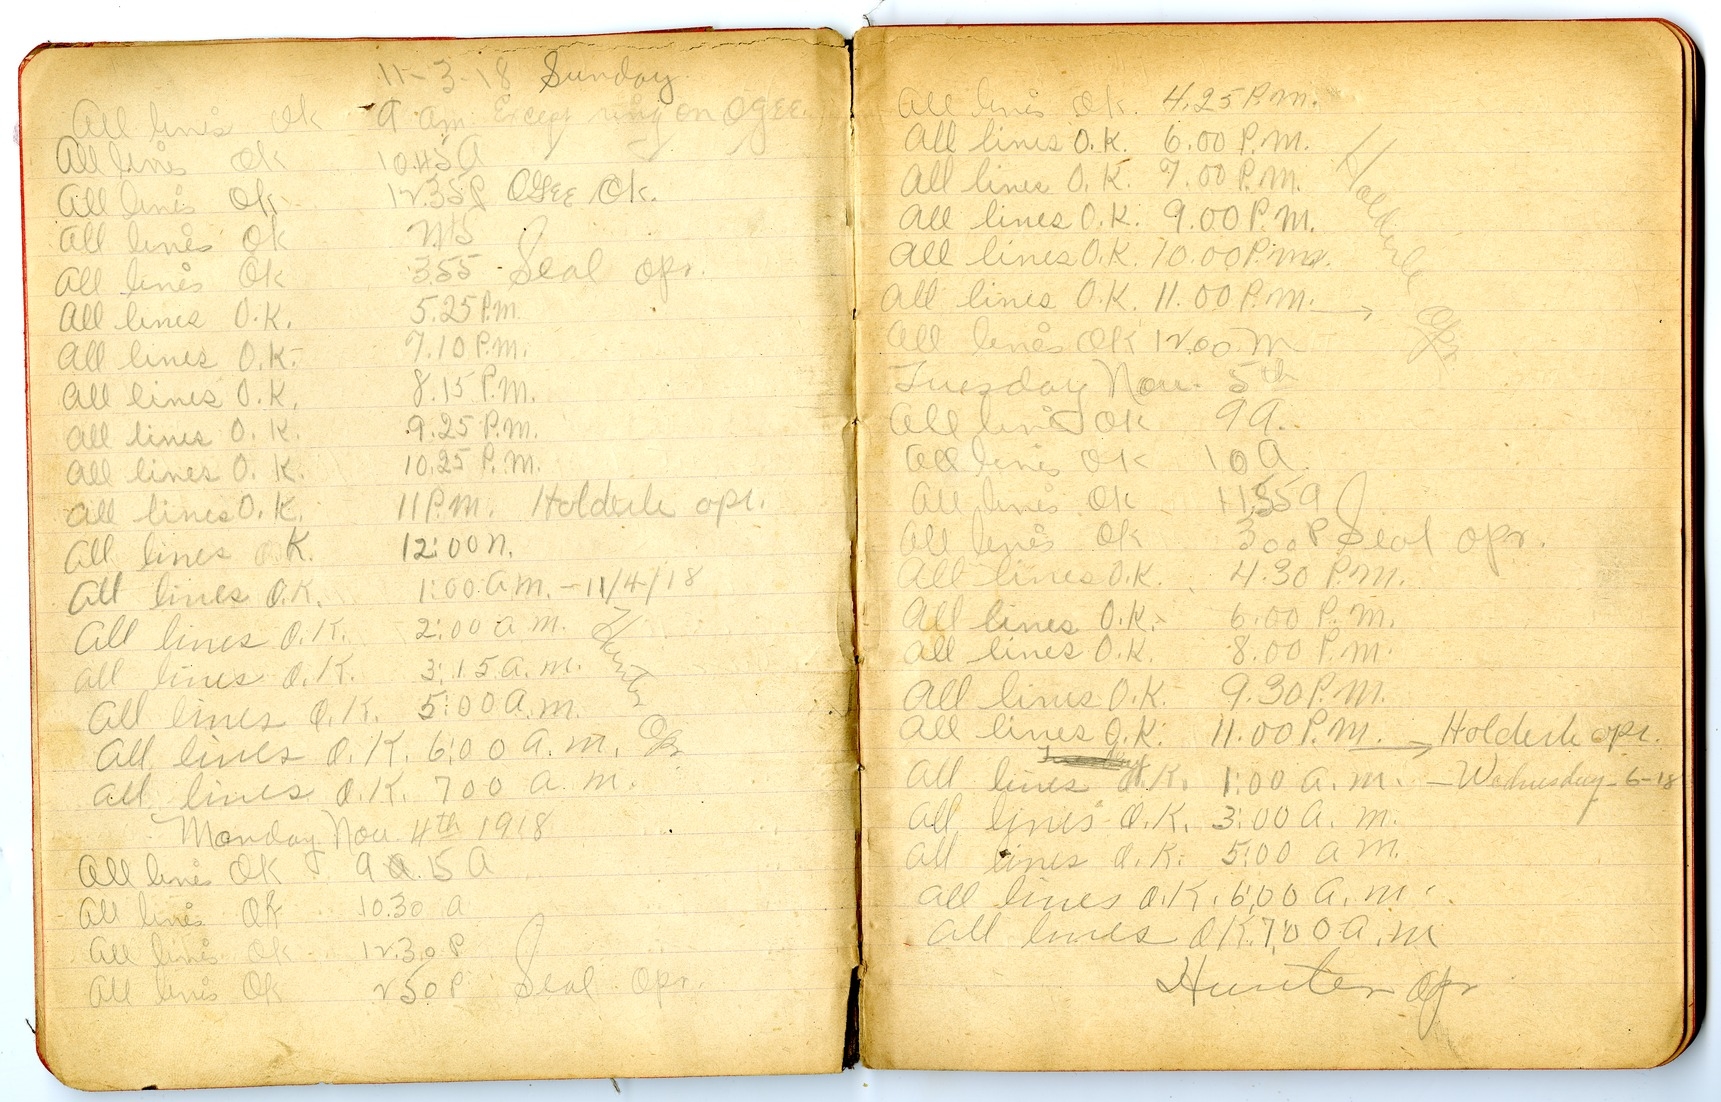 11-3-18 Sunday
All lines Ok 9 am Except ring on OGEE.
All lines Ok 10.45A
All lines Ok 12.35P OGEE Ok.
All lines Ok
All lines Ok 355 Seal opr.
All lines O.K. 5.25 P.M.
All lines O.K. 7.10 P.M.
All lines O.K. 8.15 P.M.
All lines O.K. 9.25 P.M.
All lines O.K. 10.25 P.M.
All lines O.K. 11 P.M. Holderle opr.
All lines O.K. 12:00 n.
All lines O.K. 1:00 a.m. - 11/4/18
All lines O.K. 2:00 a.m.
All lines O.K. 3:15 a.m.
All lines O.K. 5:00 A.m.
All lines O.K. 6:00 A.m.
All lines O.K. 700 a.m.
Hunter Opr
Monday Nov. 4th 1918
All lines OK 9 15 A
All lines OK 10.30 a
All lines Ok 12.30 P
All lines Ok 250 P Seal Opr.
All lines Ok. 4.25 P.m.
All lines O.K. 6.00 P.m.
All lines O.K. 7.00 P.M.
All lines O.K. 9.00 P.M.
All lines O.K. 10.00 P.m.
All lines O.K. 11.00 P.m. →
Holderle Opr
All lines OK 12.00 m
Tuesday Nov. 5th
All lines OK 9 A.
All lines OK 10 A.
All lines Ok 1135 a
All lines Ok 300 P Seal opr.
All lines O.K. 4.30 P.m.
All lines O.K. 6.00 P.m.
All lines O.K. 8.00 P.m.
All lines O.K. 9.30 P.M.
All lines O.K. 11.00 P.M. → Holderle opr.
All lines O.K. 1:00 a.m. - Wednesday - 6-18
All lines O.K. 3:00 A.m.
All lines O.K. 5:00 a m.
All lines O.K. 6:00 A.m.
All lines O.K. 7:00 a.m
Hunter Opr